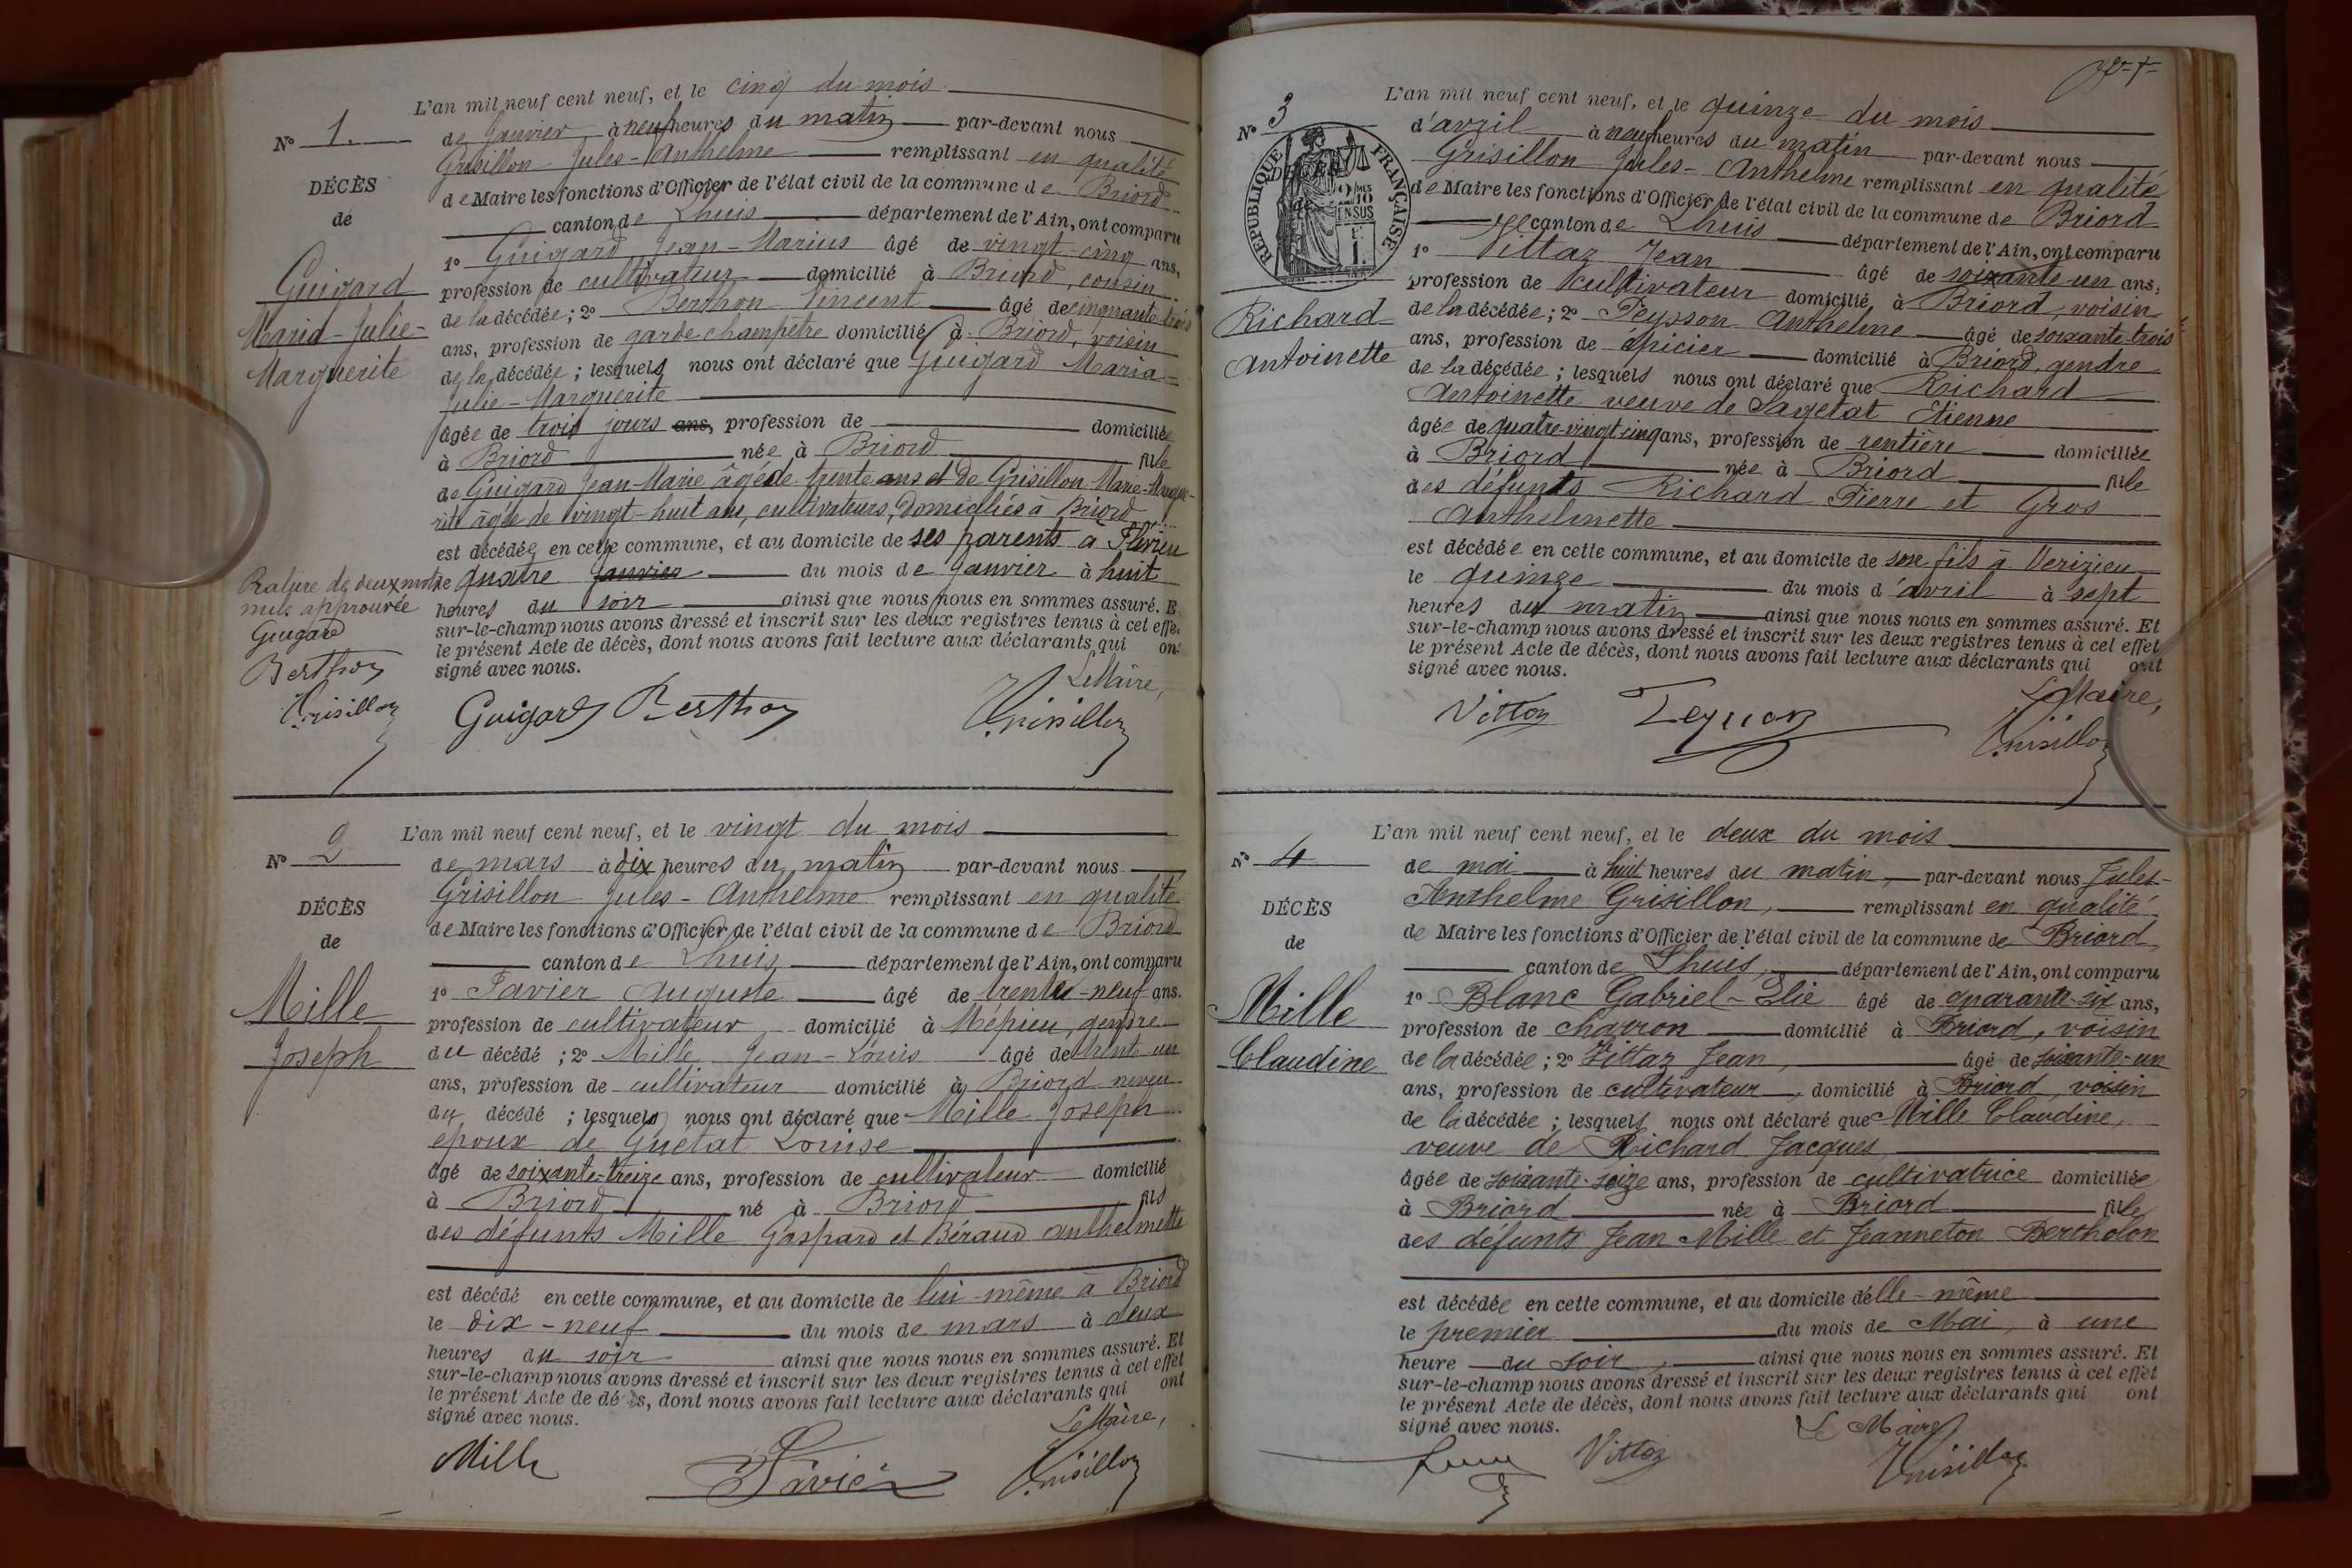 L'an mil neuf cent neuf, et le cinq du mois
N° 1.
de Janvier à neuf heures du matin par-devant nous
Grisillon Jules-Anthelme remplissant en qualité
DÉCÈS
de Maire les fonctions d'Officier de l'état civil de la commune de Briord
de
canton de Lhuis département de l'Ain, ont comparu
Guigard
Maria-Julie-
Marguerite
1° Guigard Jean-Marius âgé de vingt-cinq ans,
profession de cultivateur domicilié à Briord, cousin
de la décédée; 2° Berthon Vincent âgé de cinquante-trois
ans, profession de garde champêtre domicilié à Briord, voisin
de la décédée; lesquels nous ont déclaré que Guigard Maria-
Julie-Marguerite
âgée de trois jours ans, profession de domiciliée
à Briord née à Briord fille
de Guigard Jean-Marie âgé de trente ans et de Grisillon Marie-Margue-
rite âgée de vingt-huit ans, cultivateurs, domiciliés à Briord
est décédée en cette commune, et au domicile de ses parents à Flévieu
Rature de deux mots
nuls approuvée
Guigard
Berthon
Grisillon
le quatre Janvier du mois de Janvier à huit
heures du soir ainsi que nous nous en sommes assuré. E
sur-le-champ nous avons dressé et inscrit sur les deux registres tenus à cet effe
le présent Acte de décès, dont nous avons fait lecture aux déclarants qui on
signé avec nous.
Le Maire,
Guigard Berthon Grisillon
L'an mil neuf cent neuf, et le vingt du mois
N° 2
de mars à dix heures du matin par-devant nous
Grisillon Jules-Anthelme remplissant en qualité
DÉCÈS
de Maire les fonctions d'Officier de l'état civil de la commune de Briord
de
canton de Lhuis département de l'Ain, ont comparu
Mille
Joseph
1° Tavier Auguste âgé de trente-neuf ans.
profession de cultivateur domicilié à Mépieu, gendre
du décédé; 2° Mille Jean-Louis âgé de trente-un
ans, profession de cultivateur domicilié à Briord neveu
du décédé; lesquels nous ont déclaré que Mille Joseph
époux de Guétat Louise
âgé de soixante-treize ans, profession de cultivateur domicilié
à Briord né à Briord fils
des défunts Mille Gaspard et Béraud Anthelmette
est décédé en cette commune, et au domicile de lui-même à Briord
le dix-neuf du mois de mars à deux
heures du soir ainsi que nous nous en sommes assuré. Et
sur-le-champ nous avons dressé et inscrit sur les deux registres tenus à cet effet
le présent Acte de décès, dont nous avons fait lecture aux déclarants qui ont
signé avec nous.
Le Maire,
Mille Tavier Grisillon
L'an mil neuf cent neuf, et le quinze du mois
N° 3
d'avril à neuf heures du matin par-devant nous
Grisillon Jules-Anthelme remplissant en qualité
DÉCÈS
de
RÉPUBLIQUE FRANÇAISE
de Maire les fonctions d'Officier de l'état civil de la commune de Briord
canton de Lhuis département de l'Ain, ont comparu
Richard
Antoinette
1° Vittaz Jean âgé de soixante-un ans,
profession de cultivateur domicilié à Briord, voisin
de la décédée; 2° Peysson Anthelme âgé de soixante-trois
ans, profession de épicier domicilié à Briord, gendre
de la décédée; lesquels nous ont déclaré que Richard
Antoinette veuve de Sagetat Etienne
âgée de quatre-vingt-cinq ans, profession de rentière domiciliée
à Briord née à Briord fille
des défunts Richard Pierre et Gros
Anthelmette
est décédée en cette commune, et au domicile de son fils à Verizieu
le quinze du mois d'avril à sept
heures du matin ainsi que nous nous en sommes assuré. Et
sur-le-champ nous avons dressé et inscrit sur les deux registres tenus à cet effet
le présent Acte de décès, dont nous avons fait lecture aux déclarants qui ont
signé avec nous.
Le Maire,
Vittoz Peysson Grisillon
L'an mil neuf cent neuf, et le deux du mois
N° 4
de mai à huit heures du matin, par-devant nous Jules-
Anthelme Grisillon, remplissant en qualité
DÉCÈS
de Maire les fonctions d'Officier de l'état civil de la commune de Briord,
de
canton de Lhuis, département de l'Ain, ont comparu
Mille
Claudine
1° Blanc Gabriel-Elie âgé de quarante-six ans,
profession de charron domicilié à Briord, voisin
de la décédée; 2° Vittaz Jean, âgé de soixante-un
ans, profession de cultivateur, domicilié à Briord, voisin
de la décédée; lesquels nous ont déclaré que Mille Claudine,
veuve de Richard Jacques
âgée de soixante-seize ans, profession de cultivatrice domiciliée
à Briord née à Briord fille
des défunts Jean Mille et Jeanneton Bertholon
est décédée en cette commune, et au domicile d'elle-même
le premier du mois de Mai, à une
heure du soir, ainsi que nous nous en sommes assuré. Et
sur-le-champ nous avons dressé et inscrit sur les deux registres tenus à cet effet
le présent Acte de décès, dont nous avons fait lecture aux déclarants qui ont
signé avec nous.
Le Maire
Vittoz Grisillon